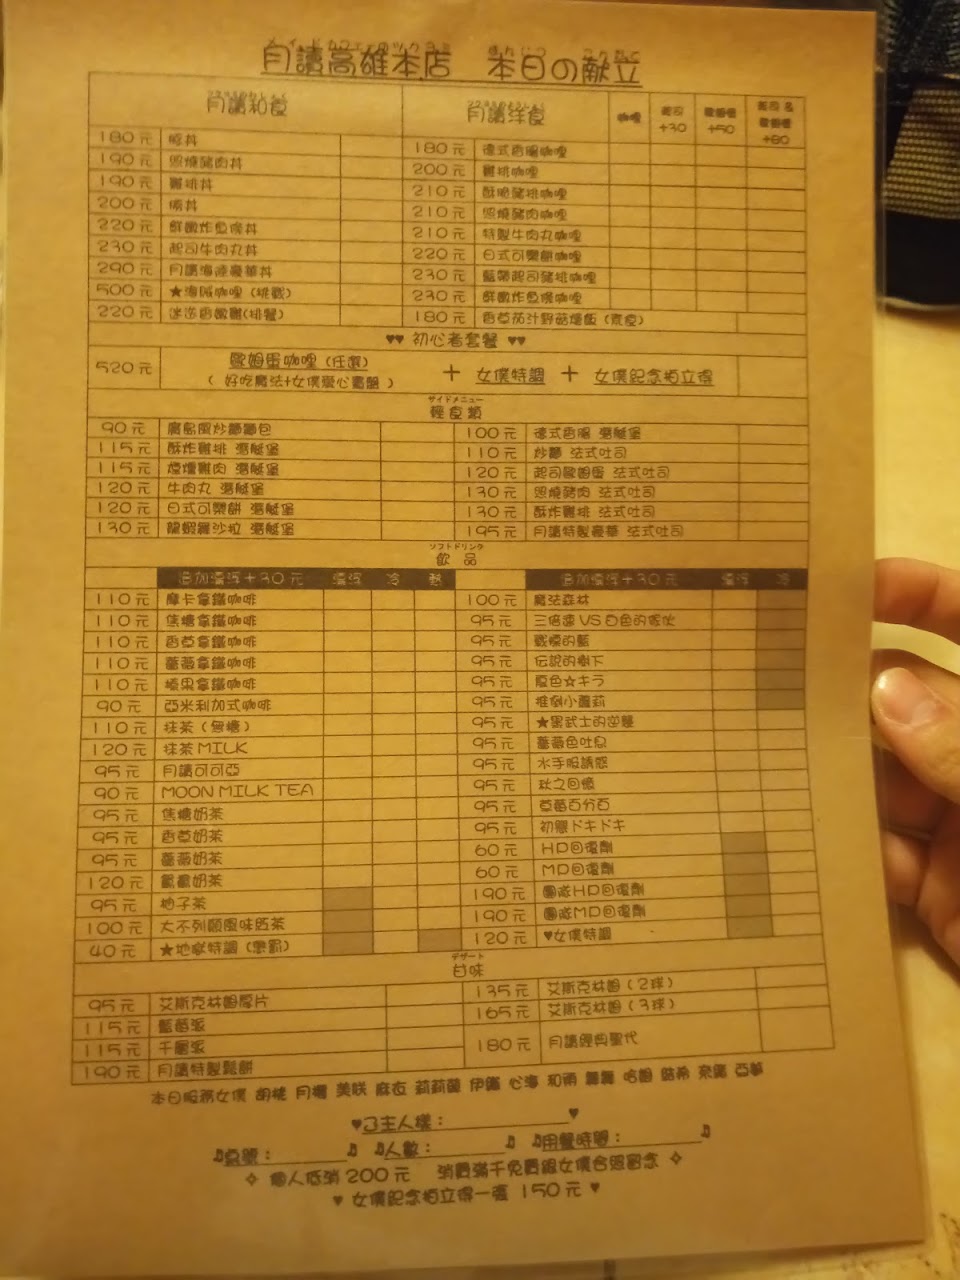 メイドカフェのツクヨミ ほんじつ こんだて
月讀高雄本店 本日の献立
月讀和食 月讀洋食 咖哩 起司+30 歐姆蛋+50 起司&歐姆蛋+80
180元 豚丼
190元 照燒豬肉丼
190元 雞排丼
200元 丼
220元 鮮嫩炸魚排丼
230元 起司牛肉丸丼
290元 月讀海陸豪華丼
500元 ★海賊咖哩(挑戰)
220元 迷迭香嫩雞(排餐)
180元 德式香腸咖哩
200元 雞排咖哩
210元 酥脆豬排咖哩
210元 照燒豬肉咖哩
210元 特製牛肉丸咖哩
220元 日式可樂餅咖哩
230元 藍帶起司豬排咖哩
230元 鮮嫩炸魚排咖哩
180元 香草茄汁野菇燉飯(素食)
♥♥ 初心者套餐 ♥♥
520元 歐姆蛋咖哩(任選) + 女僕特調 + 女僕紀念拍立得
(好吃魔法+女僕愛心畫盤)
サイドメニュー
輕食類
90元 廣島風炒麵麵包
115元 酥炸雞排 潛艇堡
115元 煙燻雞肉 潛艇堡
120元 牛肉丸 潛艇堡
120元 日式可樂餅 潛艇堡
130元 龍蝦沙拉 潛艇堡
100元 德式香腸 潛艇堡
110元 炒麵 法式吐司
120元 起司歐姆蛋 法式吐司
130元 照燒豬肉 法式吐司
130元 酥炸雞排 法式吐司
195元 月讀特製豪華 法式吐司
ソフトドリンク
飲品
追加漂浮+30元 漂浮 冷 熱
110元 摩卡拿鐵咖啡
110元 焦糖拿鐵咖啡
110元 香草拿鐵咖啡
110元 薔薇拿鐵咖啡
110元 榛果拿鐵咖啡
90元 亞米利加式咖啡
110元 抹茶(無糖)
120元 抹茶MILK
95元 月讀可可亞
90元 MOON MILK TEA
95元 焦糖奶茶
95元 香草奶茶
95元 薔薇奶茶
120元 鴛鴦奶茶
95元 柚子茶
100元 大不列顛風味奶茶
40元 ★地獄特調(懲罰)
追加漂浮+30元 漂浮 冷
100元 魔法森林
95元 三倍速VS白色的傢伙
95元 戰慄的藍
95元 伝説的樹下
95元 夏色☆キラ
95元 推倒小蘿莉
95元 ★黑武士的逆襲
95元 薔薇色吐息
95元 水手服誘惑
95元 秋之回憶
95元 草莓百分百
95元 初戀ドキドキ
60元 HD回復劑
60元 MD回復劑
190元 團隊HD回復劑
190元 團隊MD回復劑
120元 ♥女僕特調
デザート
甘味
95元 艾斯克林姆厚片
115元 藍莓派
115元 千層派
190元 月讀特製鬆餅
135元 艾斯克林姆(2球)
165元 艾斯克林姆(3球)
180元 月讀經典聖代
本日服務女僕 胡桃 月櫻 美咲 麻衣 莉莉蘭 伊織 心海 和雨 舞舞 哈姆 亞夢
♥ご主人樣:♥
♫桌號: ♫ ♫人數: ♫ ♫用餐時間: ♫
✧ 個人低消200元 消費滿千免費跟女僕合照留念 ✧
♥ 女僕紀念拍立得一張 150元 ♥